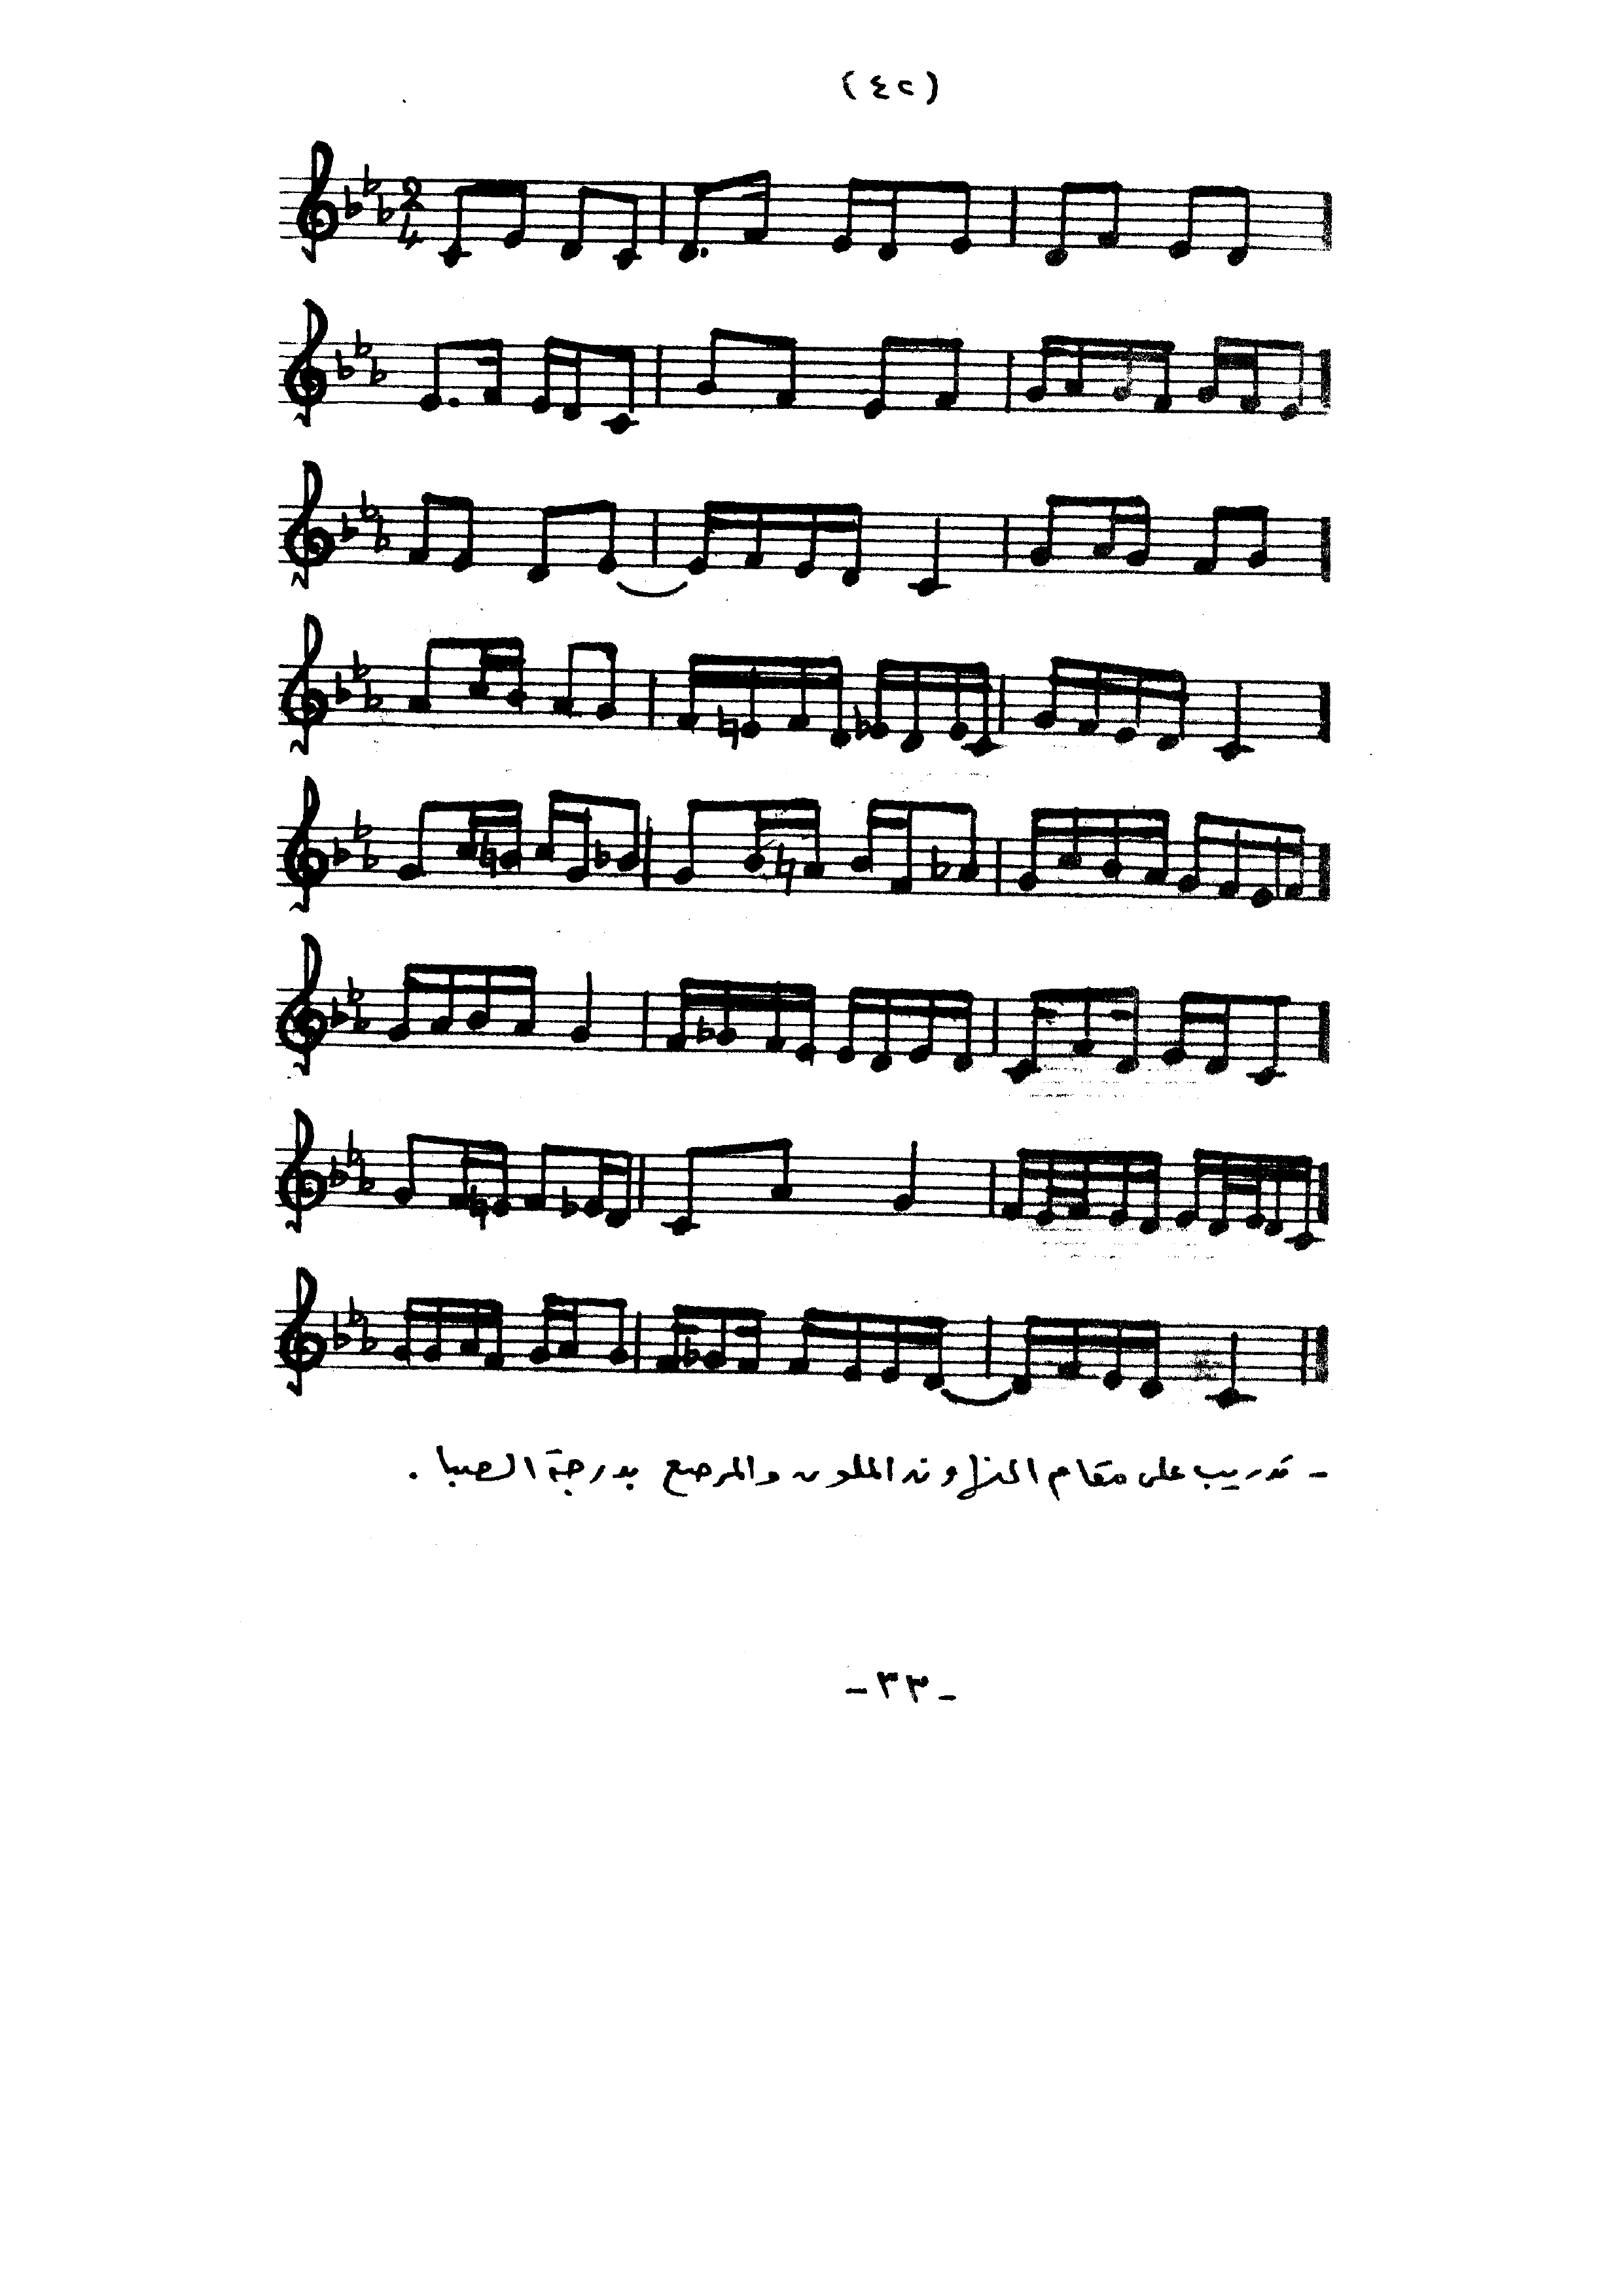 (٤٥)
2
4
- تدريب على مقام النهاوند الملون والمرصع بدرجة الصبا .
-٣٣-